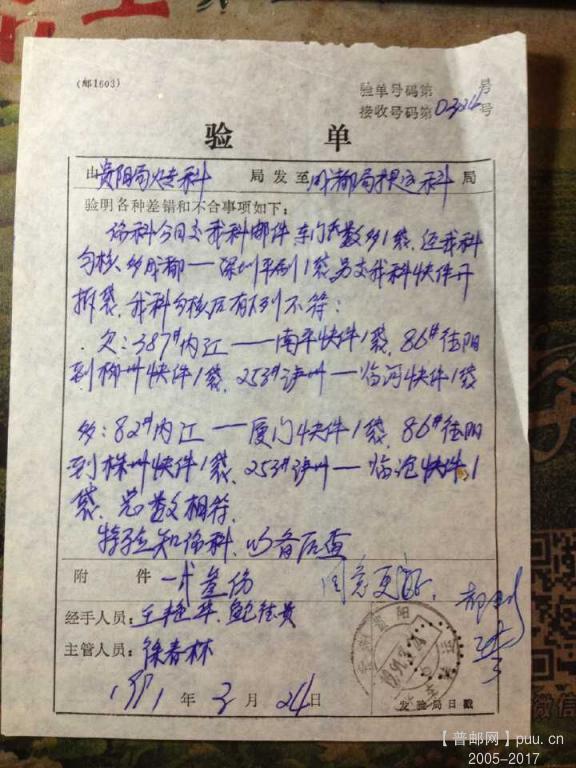 (邮1603)
验单号码第 号
接收号码第0324号
验 单
由贵阳局火专科 局发至成都局 科 局
验明各种差错和不合事项如下:
你科今日交我科邮件 袋数多1袋, 经我科
勾核, 多成都——深圳平刷1袋另交我科快件开
拆袋, 我科勾核后有下列不符:
欠:387#内江——南平快件1袋, 86#德阳
到柳州快件1袋, 253#泸州——临河快件1袋
多:82#内江——厦门快件1袋, 86#德阳
到株州快件1袋, 253#泸州——临沧快件1
袋, 总数相符,
特验知你科, 以备后查
附 件 一式叁份
同意更改
经手人员:
主管人员:徐春林
1991年3月24日
贵州贵阳
发验局日戳
【普邮网】puu.cn
2005-2017
微信